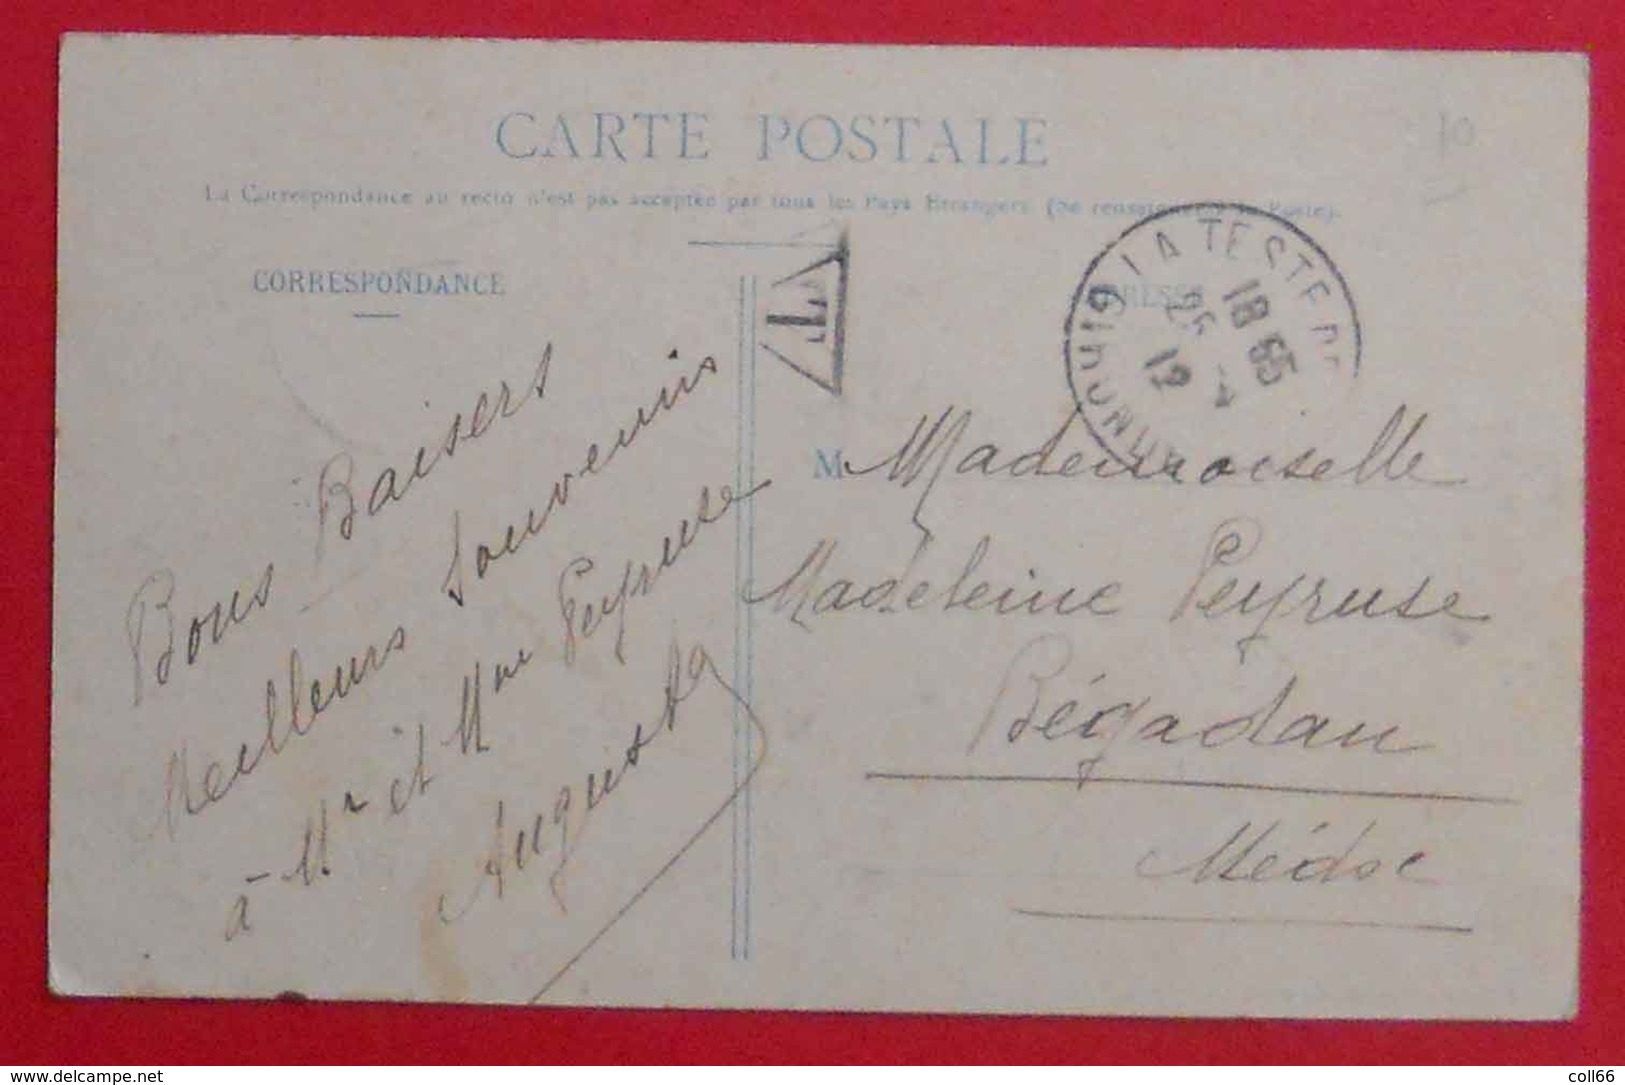 10
CARTE POSTALE
La Correspondance au recto n'est pas acceptée par tous les Pays Étrangers (Se renseigner à la Poste).
CORRESPONDANCE
T
LA TESTE
18 55
25 -4
12
GIRONDE
Bons Baisers
Meilleurs Souvenirs
à Mr et Mme Peyruse
Augusta
M Mademoiselle
Madeleine Peyruse
Bégadan
Médoc
www.delcampe.net
coll66